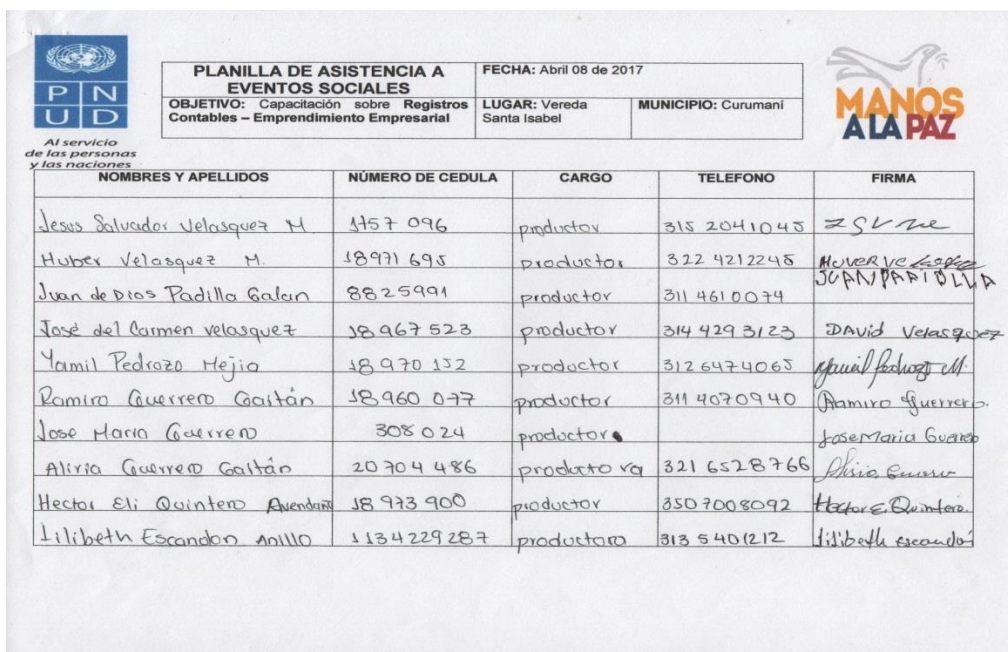 PLANILLA DE ASISTENCIA A EVENTOS SOCIALES
FECHA: Abril 08 de 2017
OBJETIVO: Capacitación sobre Registros Contables – Emprendimiento Empresarial
LUGAR: Vereda Santa Isabel
MUNICIPIO: Curumaní
P N
U D
Al servicio
de las personas
y las naciones
MANOS
A LA PAZ
NOMBRES Y APELLIDOS NÚMERO DE CEDULA CARGO TELEFONO FIRMA
Jesus Salvador Velasquez M 1757 096 productor 315 2041045
Huber Velasquez M. 18971 695 productor 322 4212248 HUVER VE
Juan de Dios Padilla Galan 8825991 productor 311 4610074 JUAN PADILLA
José del Carmen velasquez 18 967 523 productor 314 429 3123 DAvid Velasquez
Yamil Pedrozo Mejia 18 970 152 productor 312 6474065 Yamil Pedrozo M.
Ramiro Guerrero Gaitán 18 960 077 productor 311 4070940 Ramiro Guerrero.
Jose Maria Guerrero 308 024 productor Jose Maria Guerrero
Alivia Guerrero Gaitán 20 704 486 productora 321 6528766
Hector Eli Quintero Avendaño 18 973 900 productor 350 7008092 Hector E. Quintero.
Lilibeth Escandon Anillo 1134229287 productora 313 5401212 Lilibeth escandon